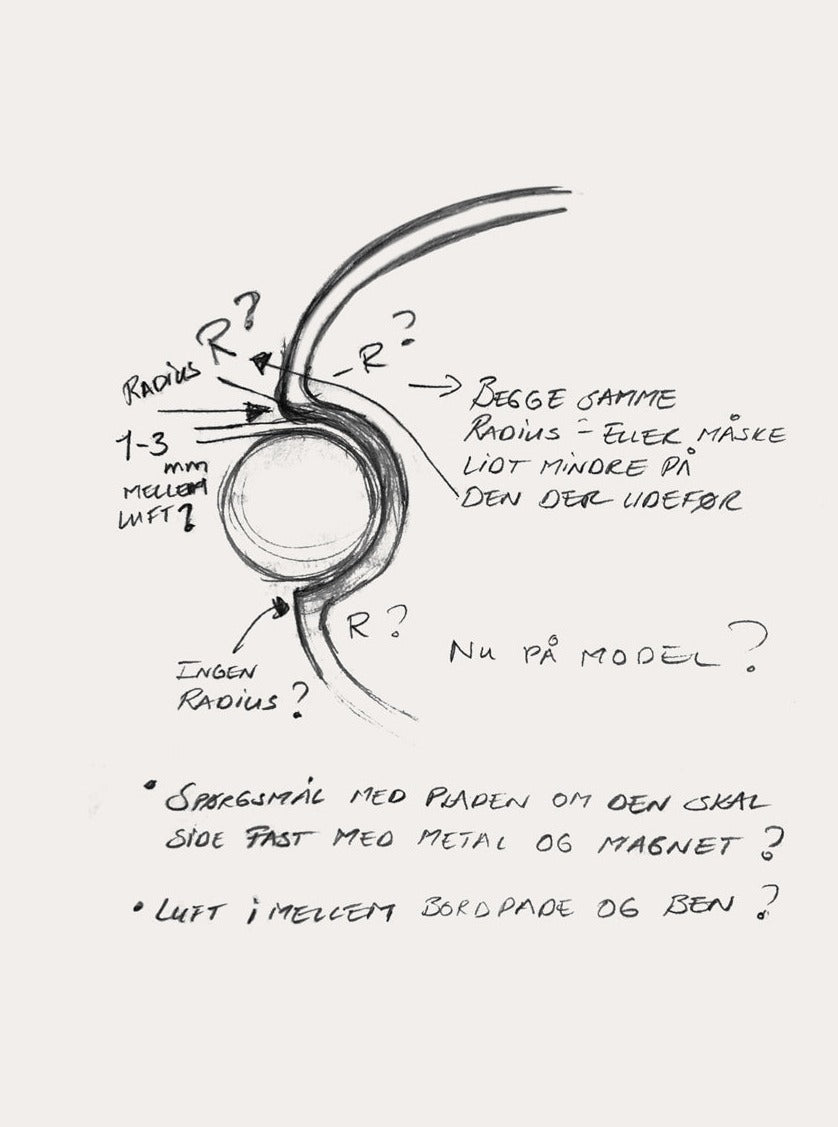 R?
RADIUS
- R?
1-3
mm
MELLEM
LUFT?
BEGGE SAMME
RADIUS - ELLER MÅSKE
LIDT MINDRE PÅ
DEN DER UDEFØR
R?
INGEN
RADIUS?
NU PÅ MODEL?
• SPØRGSMÅL MED PLADEN OM DEN SKAL
SIDE FAST MED METAL OG MAGNET?
• LUFT IMELLEM BORDPADE OG BEN?